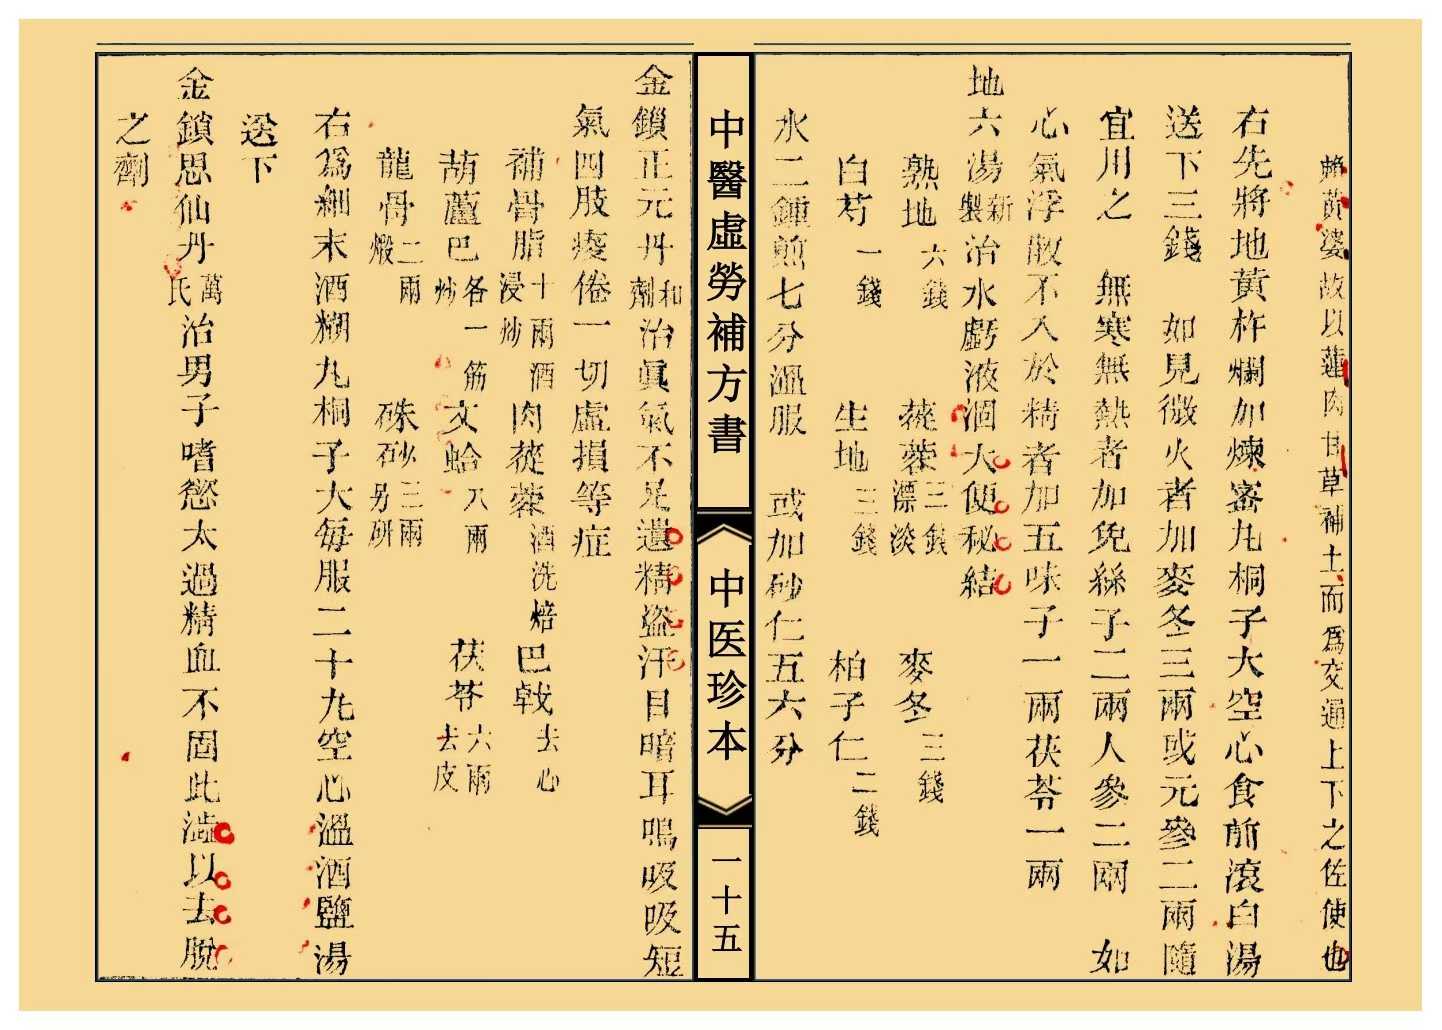 賴黃婆故以蓮肉甘草補土而爲交通上下之佐使也
右先將地黃杵爛加煉蜜丸桐子大空心食前滾白湯
送下三錢　如見微火者加麥冬三兩或元參二兩隨
宜川之　無寒無熱者加兔絲子二兩人參二兩　如
心氣浮散不入於精者加五味子一兩茯苓一兩
地六湯新製治水虧液涸大便秘結
熟地六錢　蓯蓉三錢漂淡　麥冬三錢
白芍一錢　生地三錢　柏子仁二錢
水二鍾煎七分溫服　或加砂仁五六分
中醫虛勞補方書
中医珍本
一十五
金鎖正元丹和劑治眞氣不足遺精盜汗目暗耳鳴吸吸短
氣四肢痠倦一切虛損等症
補骨脂十兩酒浸炒　肉蓯蓉酒洗焙　巴戟去心
葫蘆巴各一觔炒　文蛤八兩　茯苓六兩去皮
龍骨二兩煅　硃砂三兩另研
右爲細末酒糊丸桐子大每服二十九空心溫酒鹽湯
送下
金鎖思仙丹萬氏治男子嗜慾太過精血不固此澁以去脫
之劑